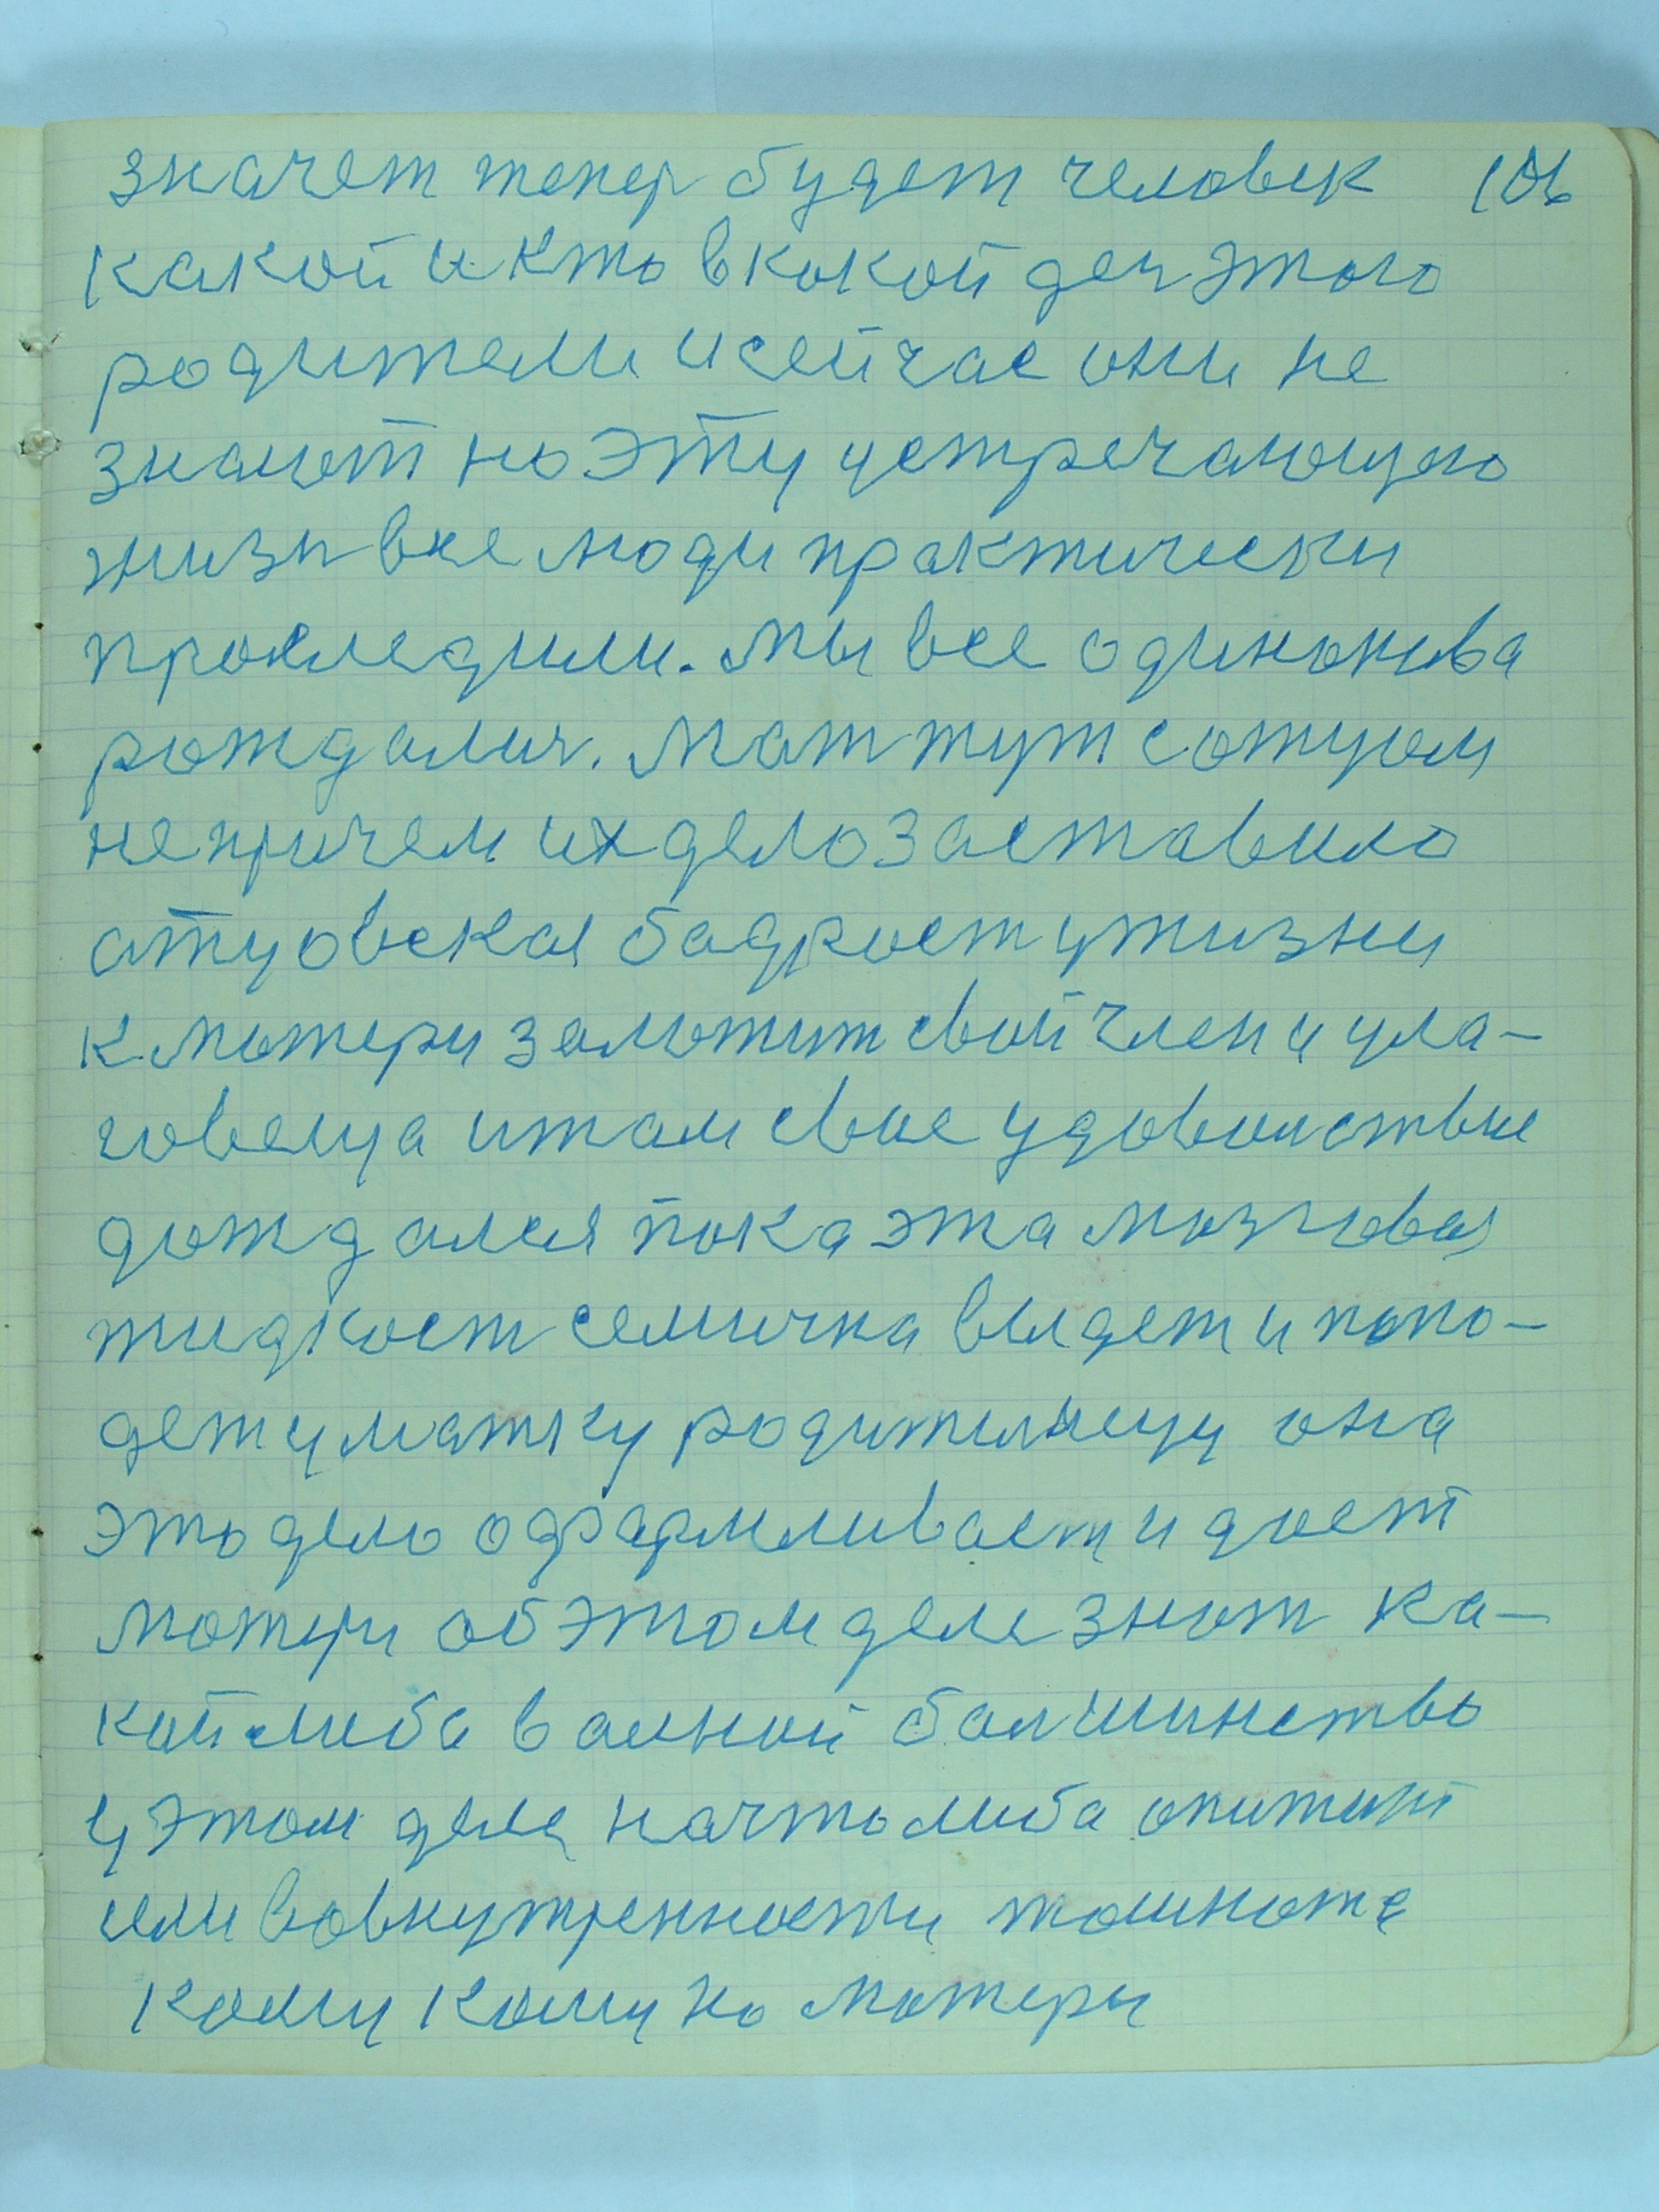 значет тепер будет человек 106
какой и кто в какой ден этого
родители и сейчас они не
знают но эту устречающую
жизн все люди практически
проследили. Мы все одинакова
рождалис. Мат тут с отцом
не причем их дело заставило
атцовская бадрост у жизни
к матери заложит свой член и ула-
говеца и там свое удоволствие
дождался пока эта мозговая
жидкост семичка выдет и попо-
дет у матку родителницу она
это дело офармливает и дает
матери об этом деле знат ка-
кой либа важной балшинство
у этом деле на что либа опитит
или вовнутренности тошнота
кому кому но матери